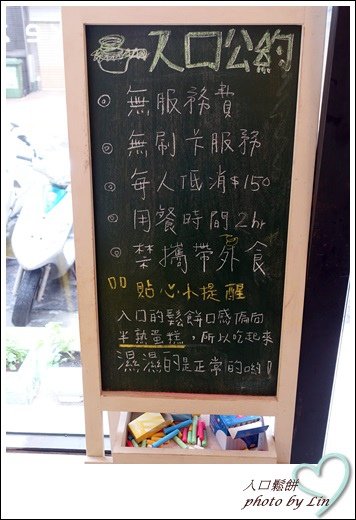 入口公約
無服務費
無刷卡服務
每人低消$150
用餐時間2hr
禁攜帶外食
貼心小提醒
入口的鬆餅口感偏向
半熟蛋糕，所以吃起來
濕濕的是正常的喲！
入口鬆餅
photo by Lin